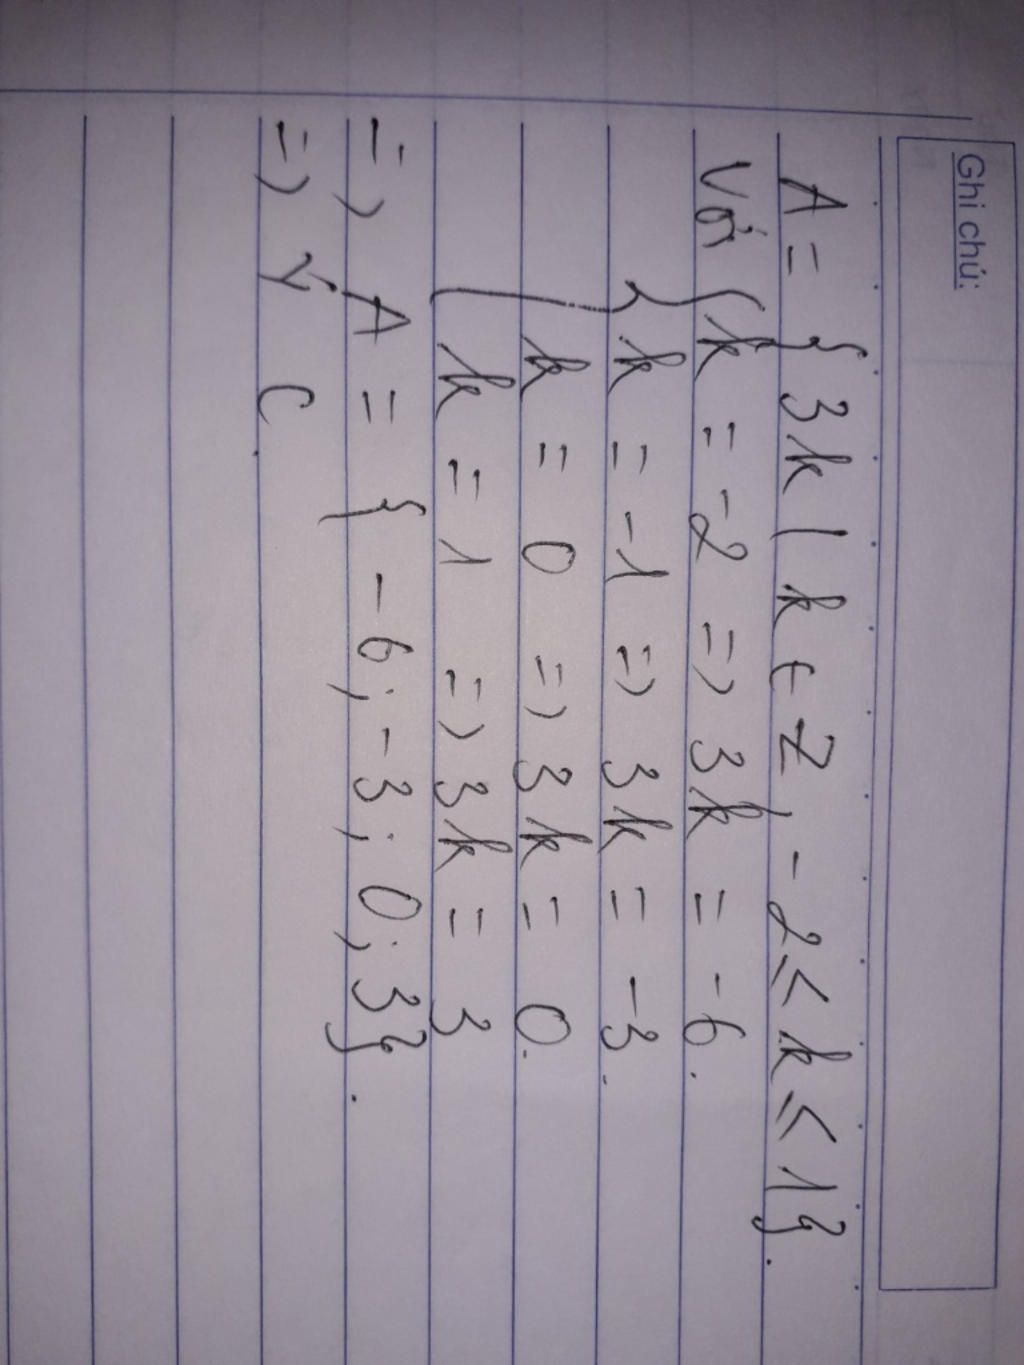 Ghi chú:
A = { 3k | k ∈ Z, -2 ≤ k ≤ 1}.
Với { k = -2 => 3k = -6.
k = -1 => 3k = -3.
k = 0 => 3k = 0.
k = 1 => 3k = 3
=> A = { -6; -3; 0; 3}.
=> Ý C.